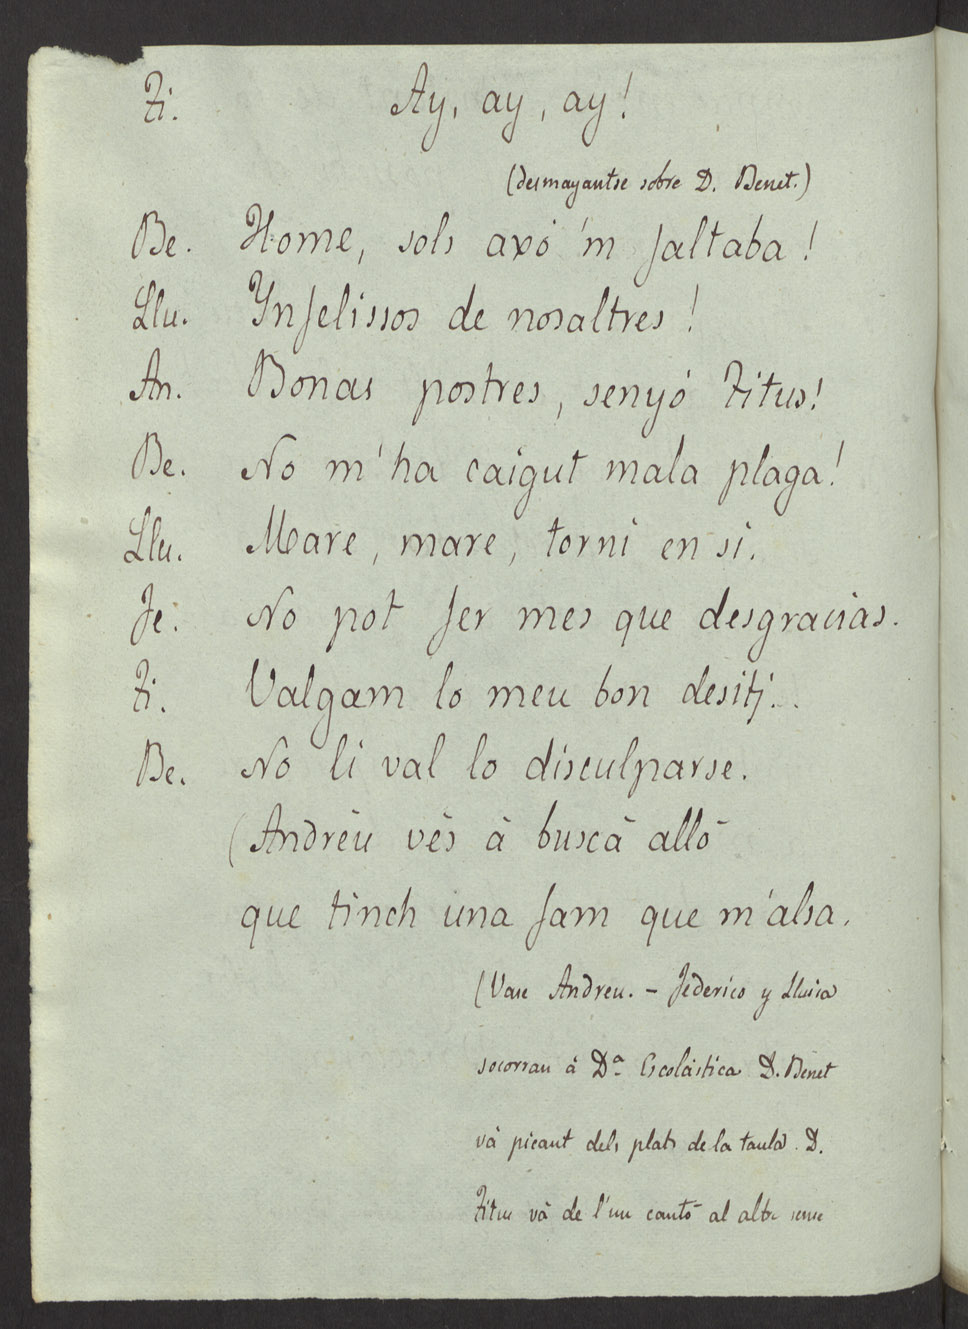 Ti. Ay, ay, ay!
(desmayantse sobre D. Benet.)
Be. Home, sols axó 'm faltaba!
Llu. Ynfelissos de nosaltres!
An. Bonas postres, senyó Titus!
Be. No m'ha caigut mala plaga!
Llu. Mare, mare, torni en si.
Fe. No pot ser mes que desgracias.
Ti. Valgam lo meu bon desitj..
Be. No li val lo disculparse.
(Andréu vés á buscá alló
que tinch una fam que m'alsa.
(Vase Andreu. - Federico y Lluisa
socorran á Dª Escolástica D. Benet
vá picant dels plats de la taula. D.
Titus vá de l'un cantó al altre sense